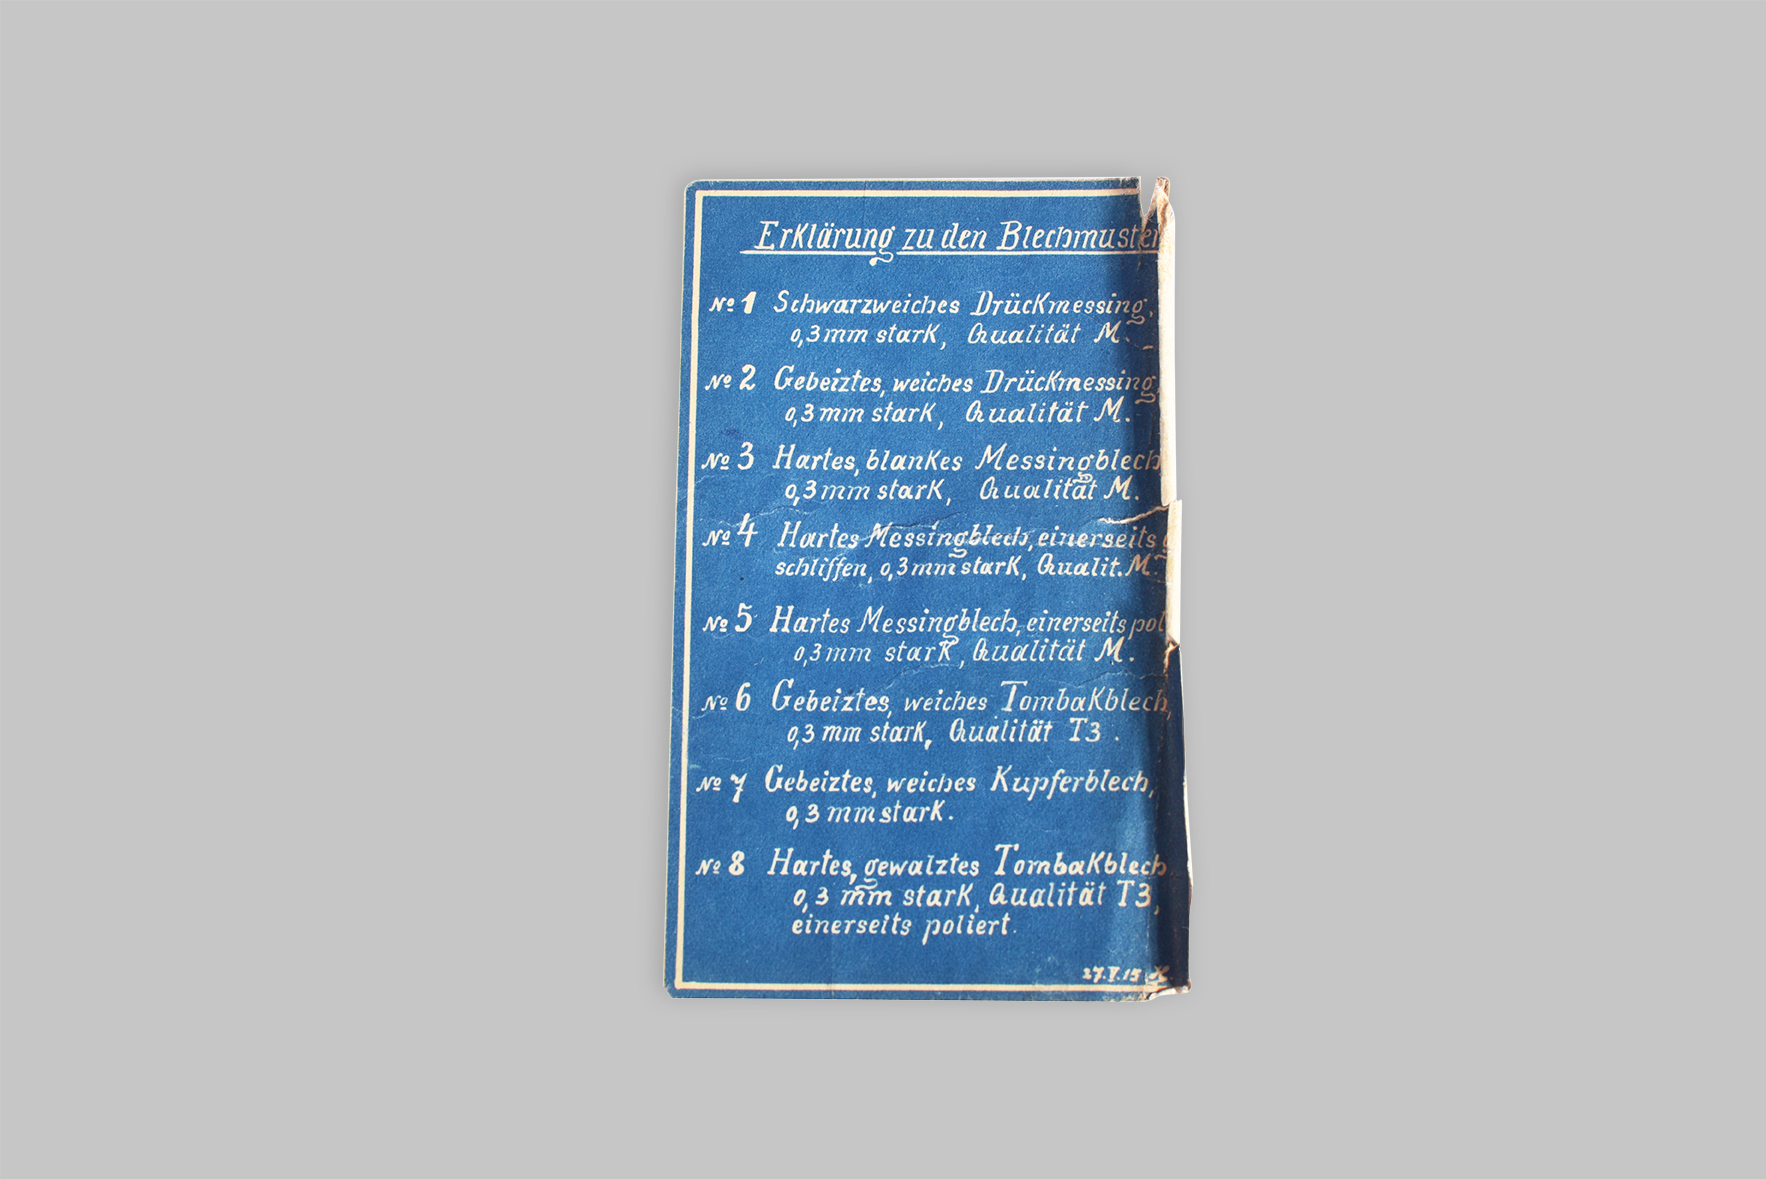 Erklärung zu den Blechmuster
No 1 Schwarzweiches Drückmessing,
0,3 mm stark, Qualität M.
No 2 Gebeiztes, weiches Drückmessing,
0,3 mm stark, Qualität M.
No 3 Hartes, blankes Messingblech
0,3 mm stark, Qualität M.
No 4 Hartes Messingblech, einerseits g
schliffen, 0,3 mm stark, Qualit. M.
No 5 Hartes Messingblech, einerseits pol
0,3 mm stark, Qualität M.
No 6 Gebeiztes, weiches Tombakblech,
0,3 mm stark, Qualität T3.
No 7 Gebeiztes, weiches Kupferblech,
0,3 mm stark.
No 8 Hartes, gewalztes Tombakblech
0,3 mm stark, Qualität T3,
einerseits poliert.
27.V.15